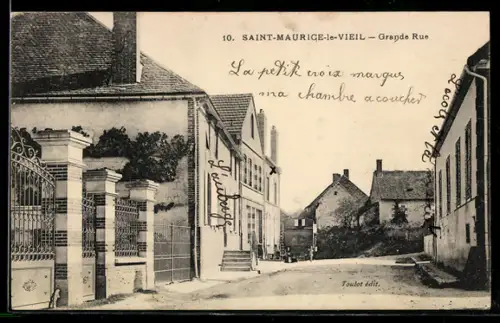 10. SAINT-MAURICE-le-VIEIL — Grande Rue
La petit croix marqus
ma chambre a coucher
Toudot édit.